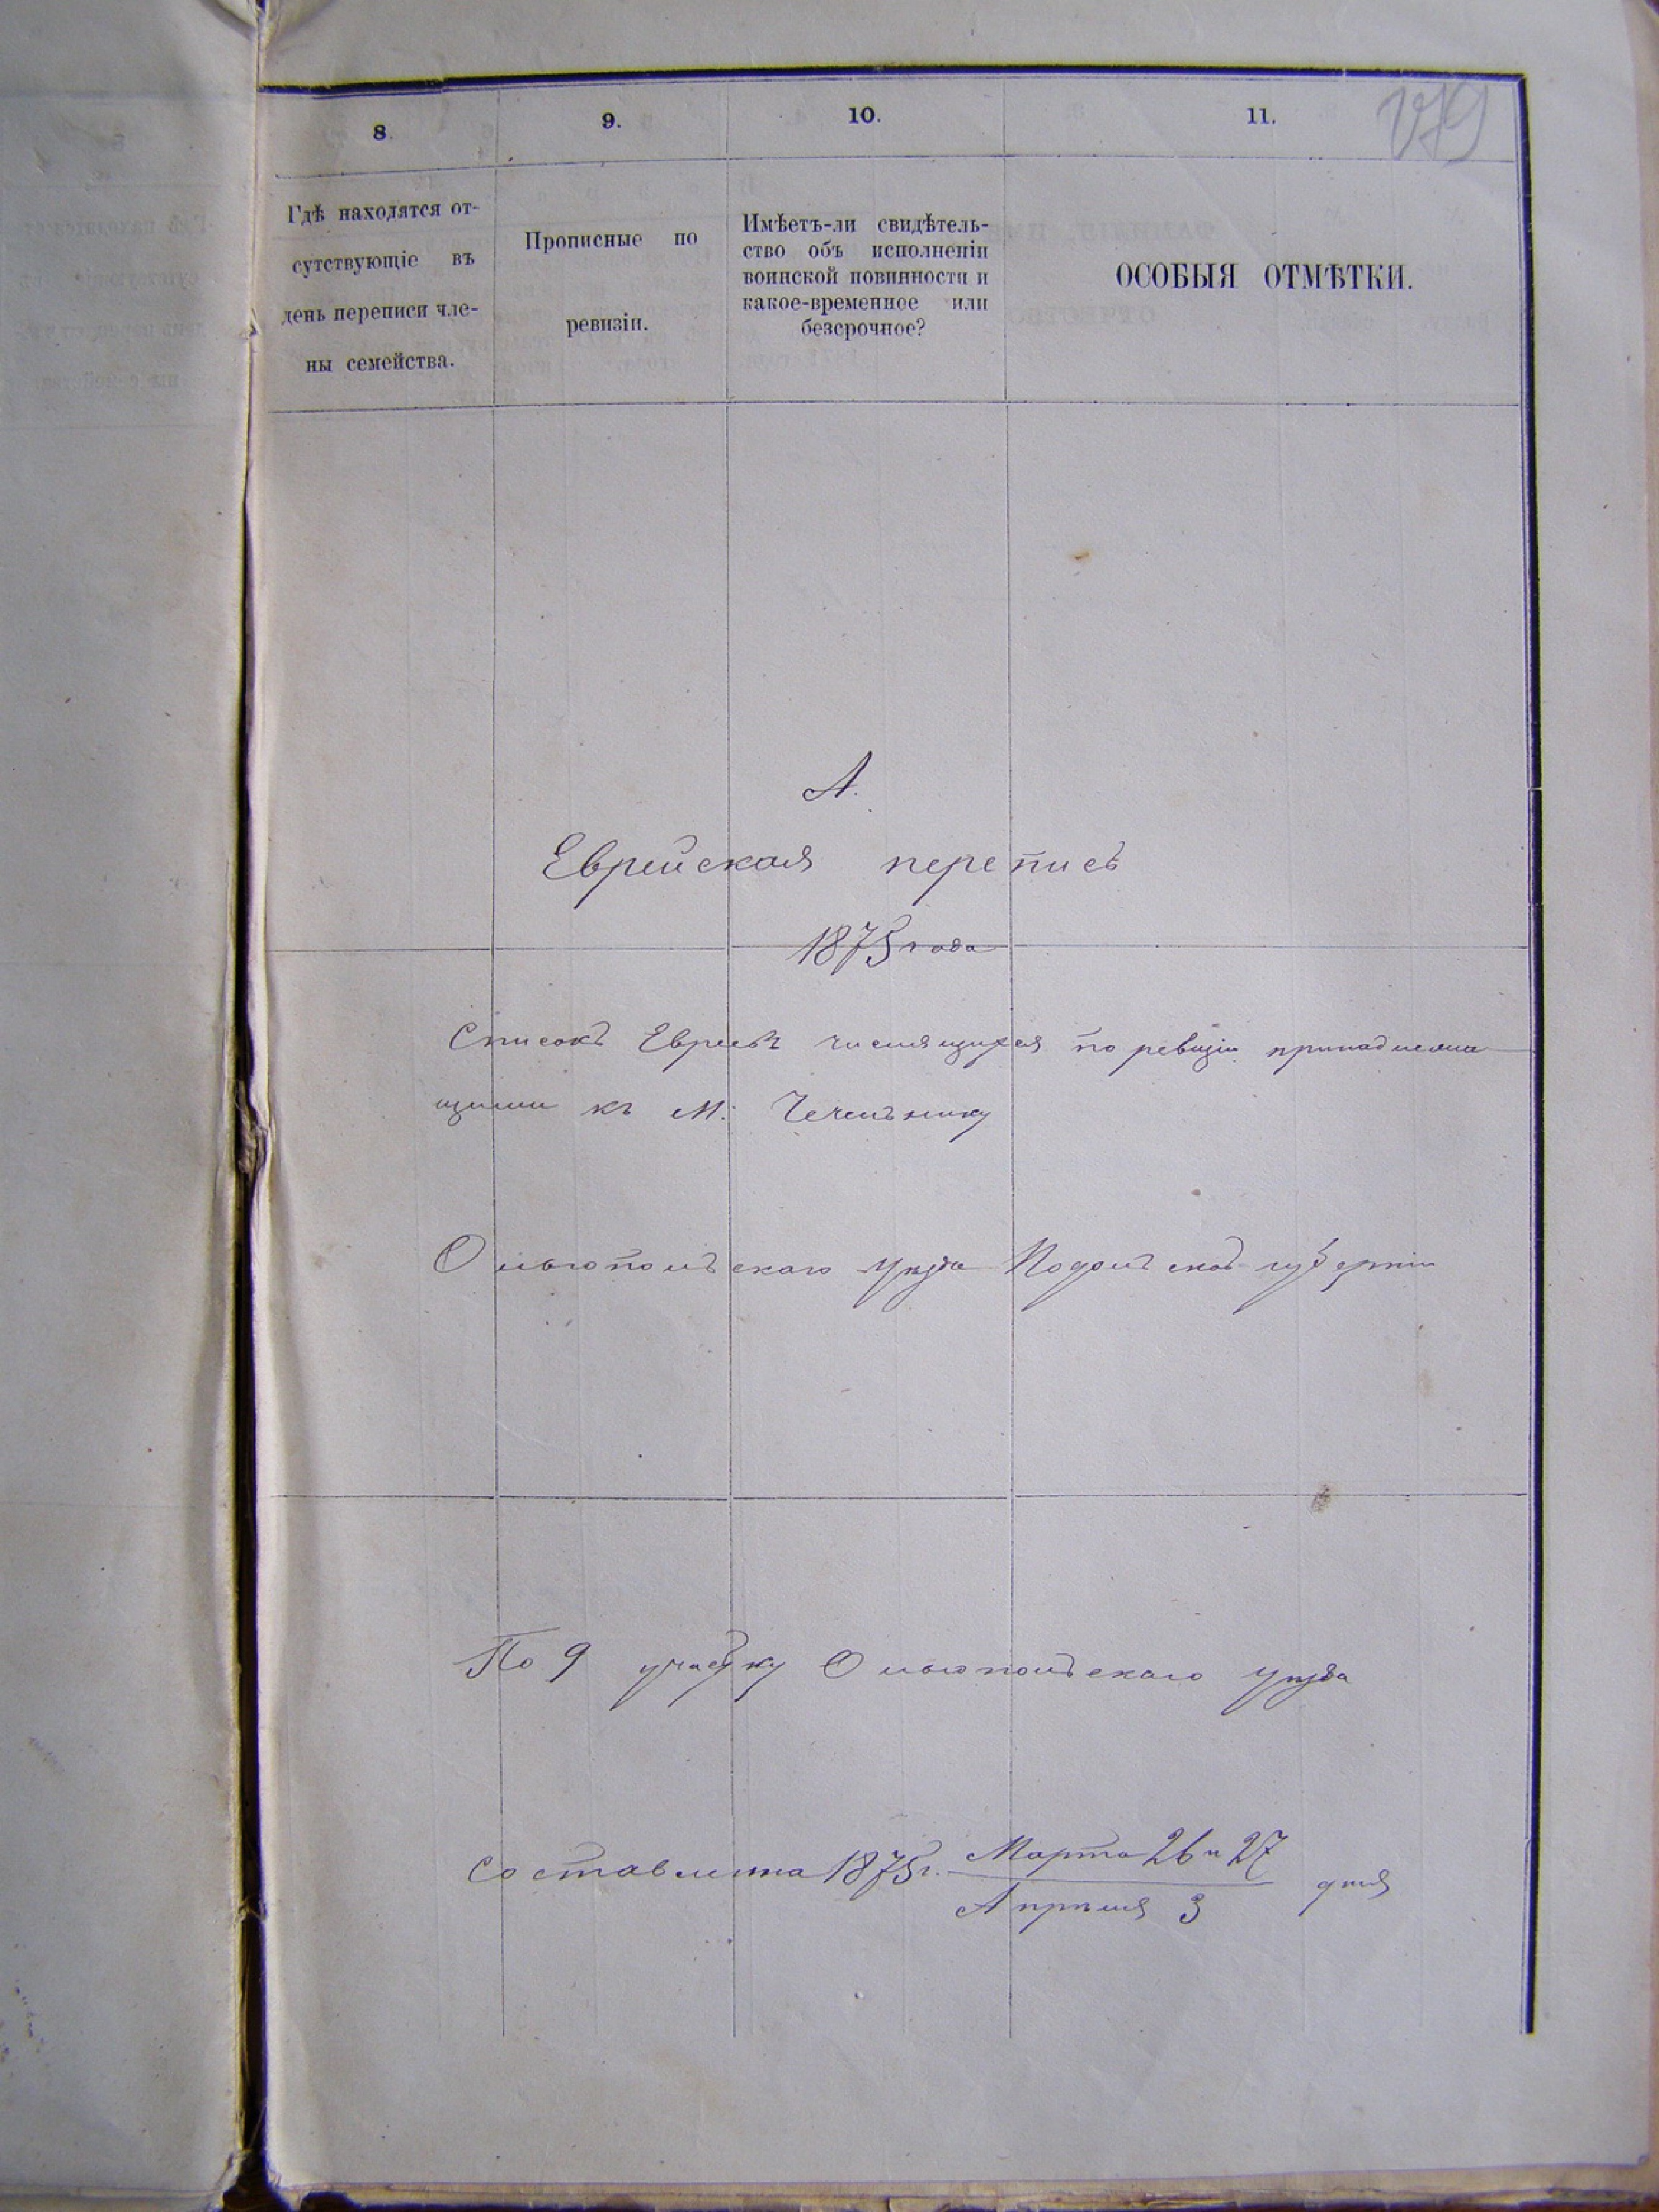 8 9. 10. 11.
Гдѣ находятся от-
сутствующіе въ
день переписи чле-
ны семейства.
Прописные по
ревизіи.
Имѣетъ-ли свидѣтель-
ство объ исполненіи
воинской повинности и
какое-временное или
безсрочное?
ОСОБЫЯ ОТМѢТКИ.
А.
Еврейская перепись
1875 года
Списокъ Евреевъ числящихся по ревизіи принадлежа
щими къ м. Чечельнику
Ольгопольскаго уѣзда Подольской губерніи
По 9 участку Ольгопольскаго уѣзда
Составлена 1875 г. Марта 26 и 27
Апрѣля 3 дня